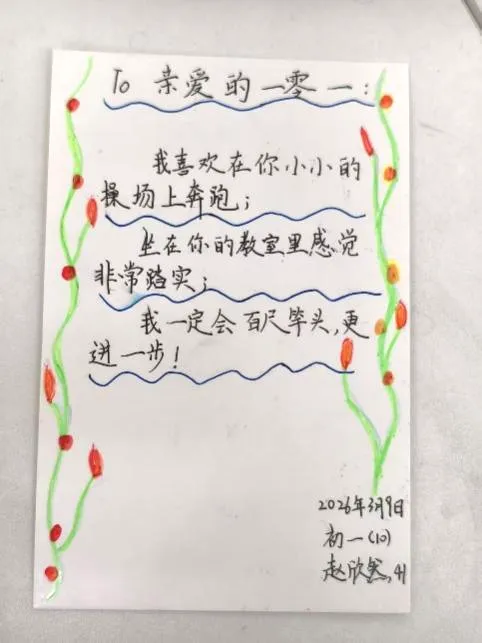 To 亲爱的一零一:
我喜欢在你小小的
操场上奔跑;
坐在你的教室里感觉
非常踏实;
我一定会百尺竿头,更
进一步!
2026年3月9日
初一(10)
赵欣然,41